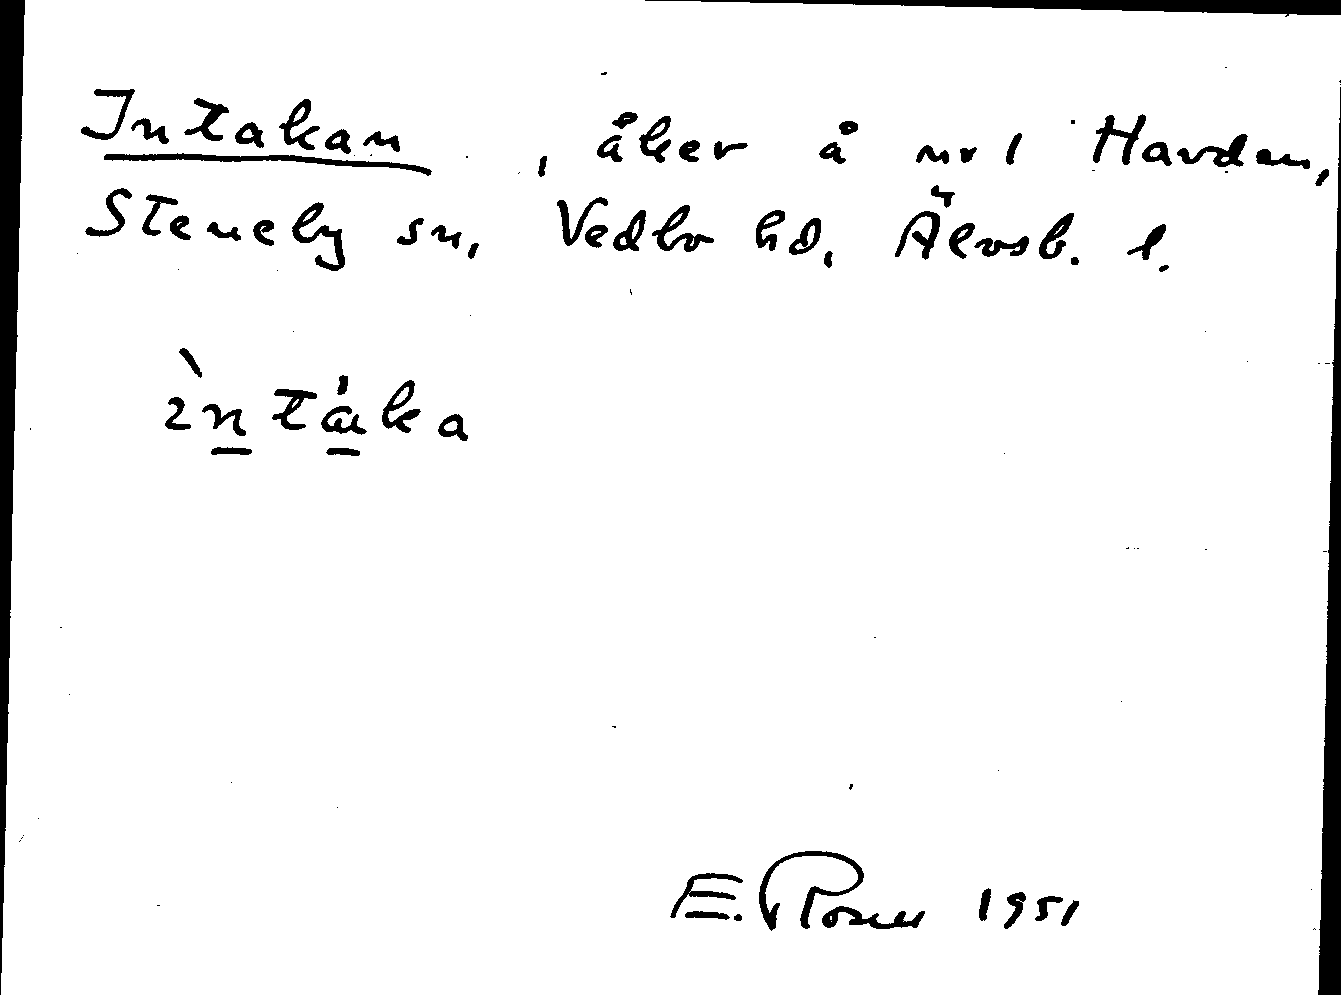 Intakan , åker å nr 1 Havden,
Steneby sn, Vedbo hd, Älvsb. l.
ìntáka
E. Rosen 1951